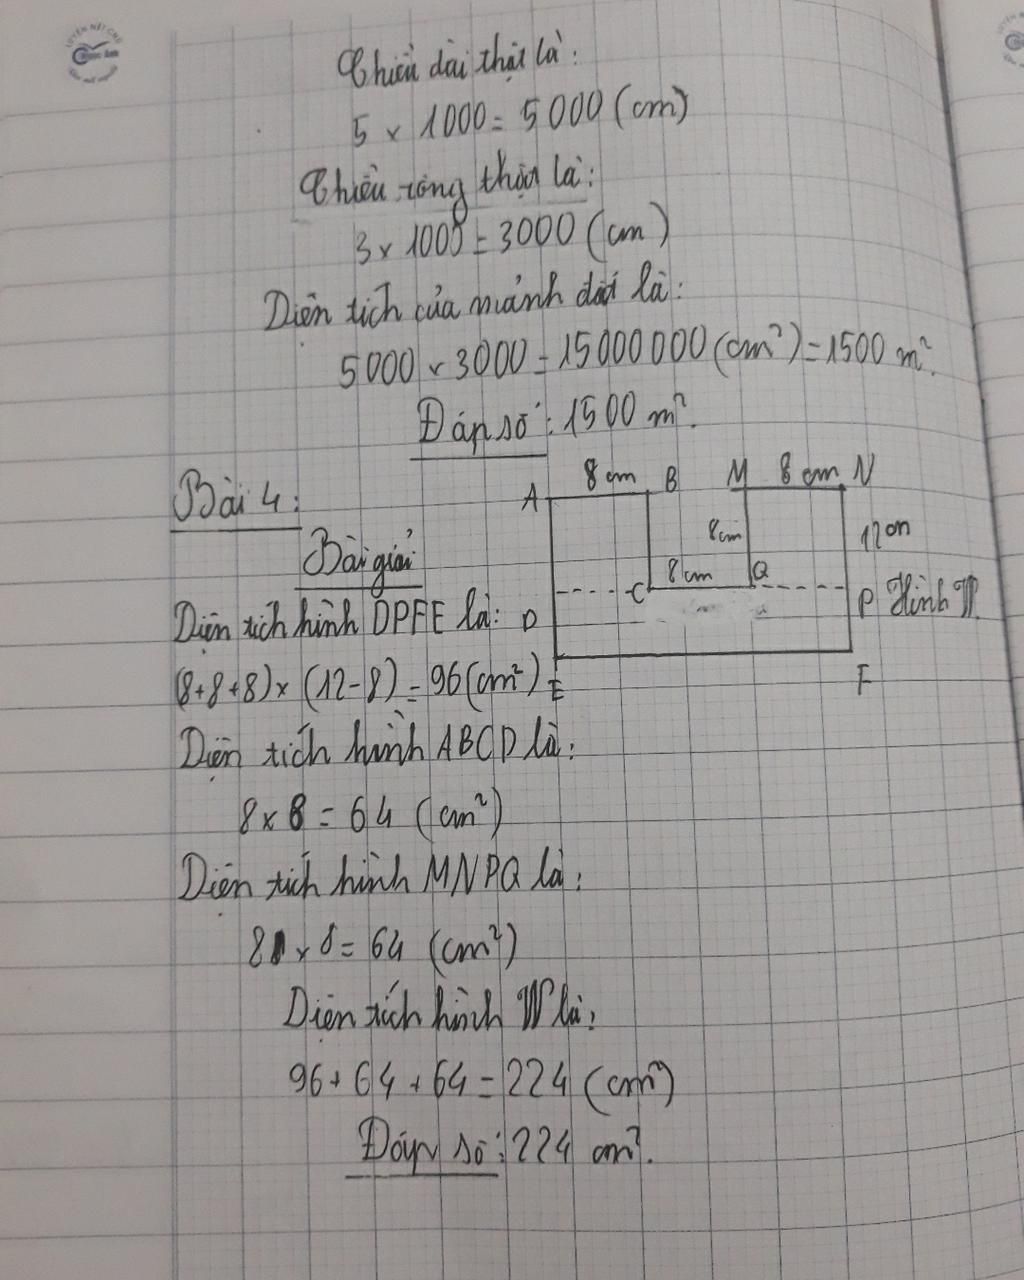 LUYỆN NÉT CHỮ
Chiều dài thật là:
5 x 1000 = 5000 (cm)
Chiều rộng thật là:
3 x 1000 = 3000 (cm)
Diện tích của mảnh đất là:
5000 x 3000 = 15000000 (cm²) = 1500 m².
Đáp số: 1500 m².
Bài 4:
8 cm B M 8 cm N
A
8cm 12cm
Bài giải
8cm Q
C P Hình W
Diện tích hình DPFE là: D
(8+8+8) x (12-8) = 96 (cm²) E F
Diện tích hình ABCD là:
8 x 8 = 64 (cm²)
Diện tích hình MNPQ là:
8 x 8 = 64 (cm²)
Diện tích hình W là:
96 + 64 + 64 = 224 (cm²)
Đáp số: 224 cm².